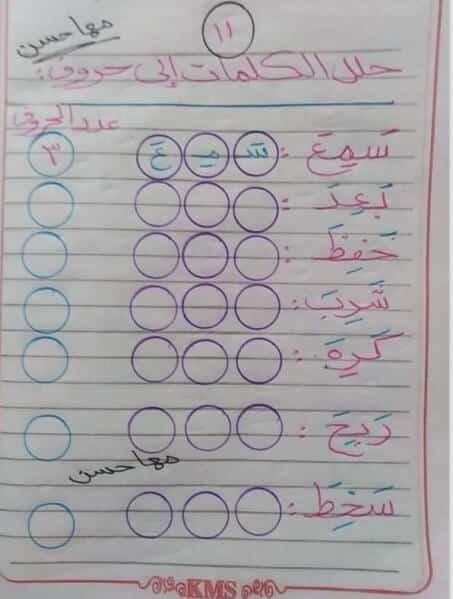 ١١
مها حسن
حلل الكلمات إلى حروف:
عدد الحروف
سَمِعَ : سَـ مِـ عَ ٣
بَعِدَ :
حَفِظَ :
شَرِبَ :
كَرِهَ :
رَبِحَ :
مها حسن
سَخِطَ :
KMS